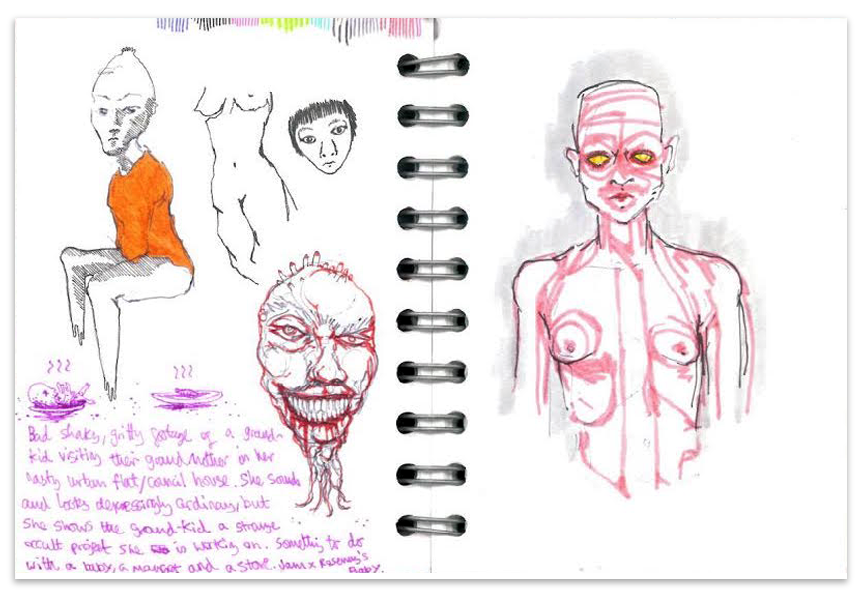 Bad shaky, gritty footage of a grand-
kid visiting their grandmother on her
nasty urban flat/council house. She sounds
and looks depressingly ordinary, but
she shows the grand-kid a strange
occult project she is working on. Something to do
with a baby, a and a stove. Jam x Rosemary's
Baby.